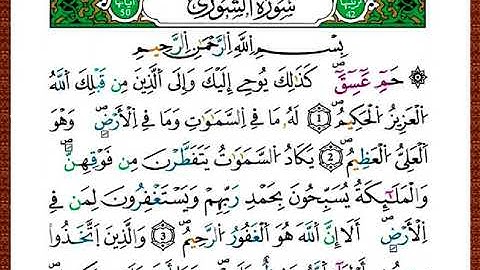 سورة الشورى
ترتيبها 42
آياتها 50
بِسْمِ اللَّهِ الرَّحْمَٰنِ الرَّحِيمِ
حمٓ عٓسٓقٓ ۚ كَذَٰلِكَ يُوحِي إِلَيْكَ وَإِلَى الَّذِينَ مِن قَبْلِكَ اللَّهُ
الْعَزِيزُ الْحَكِيمُ ۝1 لَهُ مَا فِي السَّمَٰوَٰتِ وَمَا فِي الْأَرْضِ ۖ وَهُوَ
الْعَلِيُّ الْعَظِيمُ ۝2 يَكَادُ السَّمَٰوَٰتُ يَتَفَطَّرْنَ مِن فَوْقِهِنَّ ۖ
وَالْمَلَٰٓئِكَةُ يُسَبِّحُونَ بِحَمْدِ رَبِّهِمْ وَيَسْتَغْفِرُونَ لِمَن فِي
الْأَرْضِ ۖ أَلَا إِنَّ اللَّهَ هُوَ الْغَفُورُ الرَّحِيمُ ۝3 وَالَّذِينَ اتَّخَذُوا